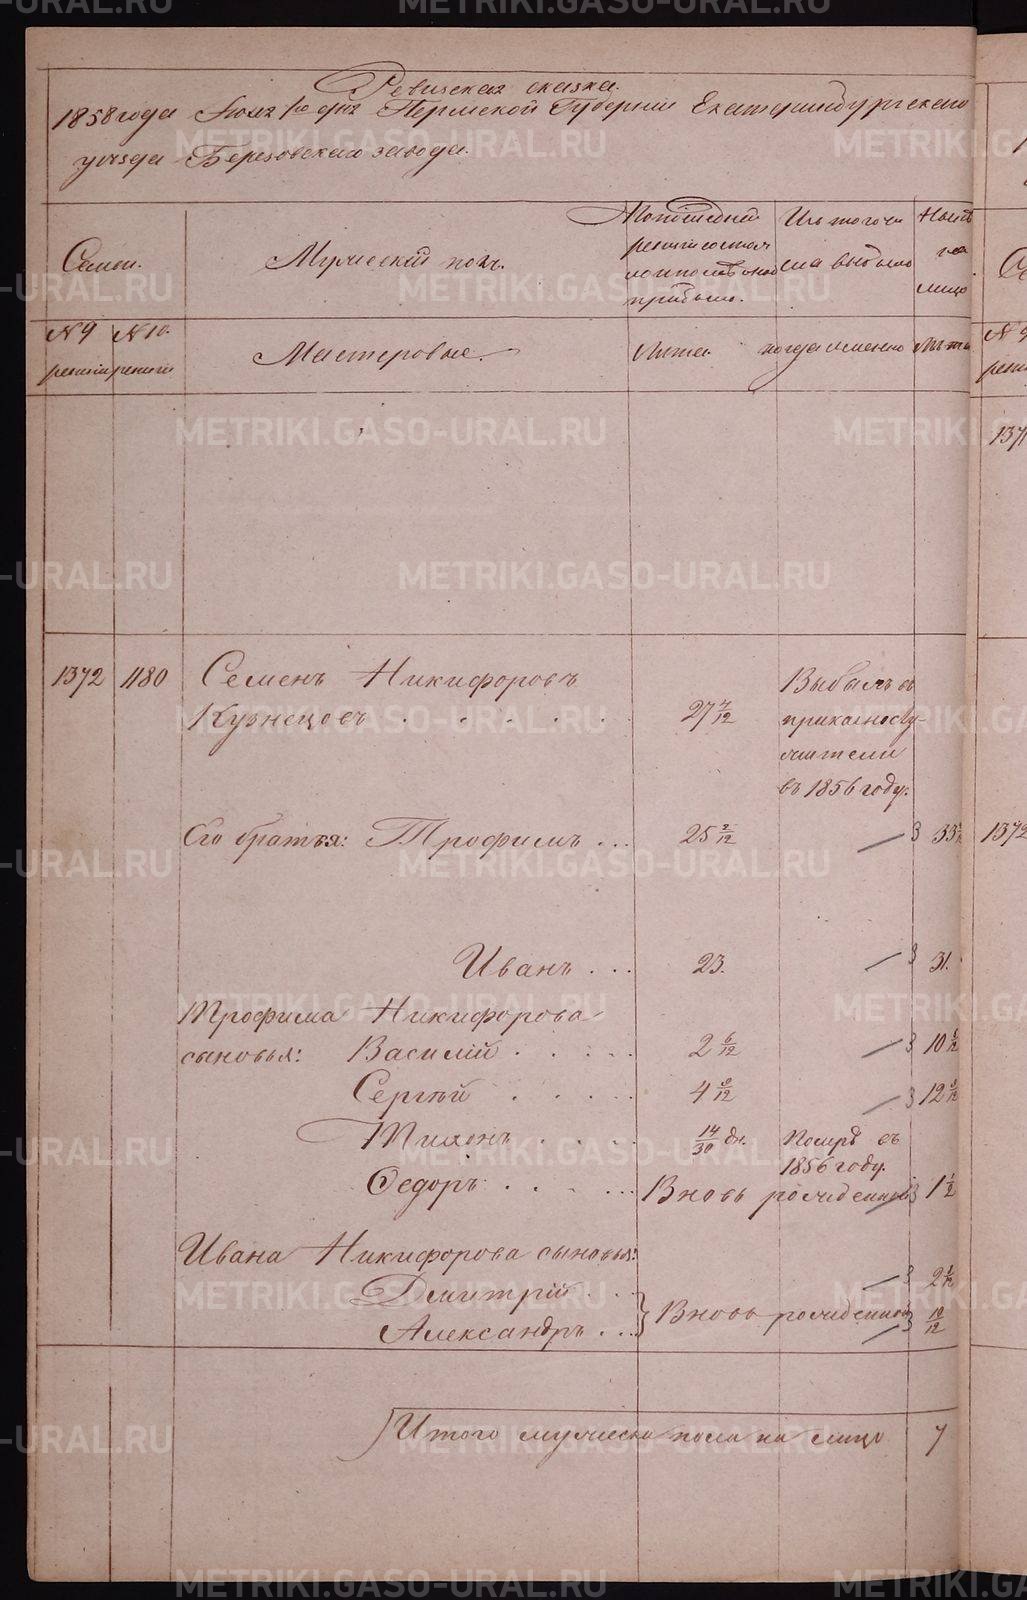 Ревизская сказка.
1858 года Июля 1го дня Пермской Губернiи Екатеринбургскаго
уѣзда Березовскаго завода.
Семьи.
Мужескiй полъ.
По последней
ревизiи состоя
ло и после оной
прибыло.
Изъ того чи
сла выбыло
Ныне
на
лицо
№ 9 ревизiи
№ 10. ревизiи
Мастеровые.
Лета.
когда именно
Лѣта
1371
1372 1180 Семенъ Никифоровъ
Кузнецовъ . . . . . 27 7/12
Выбылъ въ
приказнослу-
жители
въ 1856 году.
Его братья: Трофимъ . . . 25 2/12 — 3 33 1372
Иванъ . . . 23. — 3 31.
Трофима Никифорова
сыновья: Василiй . . . . . 2 6/12 — 3 10 6/12
Сергѣй . . . . . 4 8/12 — 3 12 8/12
Тихонъ . . . . 14/30 дн. Померъ въ
1856 году.
Ѳедоръ . . . . . . Вновь рожденной 3 1 1/2
Ивана Никифорова сыновья:
Дмитрiй . . . — 3 2
Александръ . . . } Вновь рожденной 3 10/12
Итого мужеска пола на лицо 7
METRIKI.GASO-URAL.RU